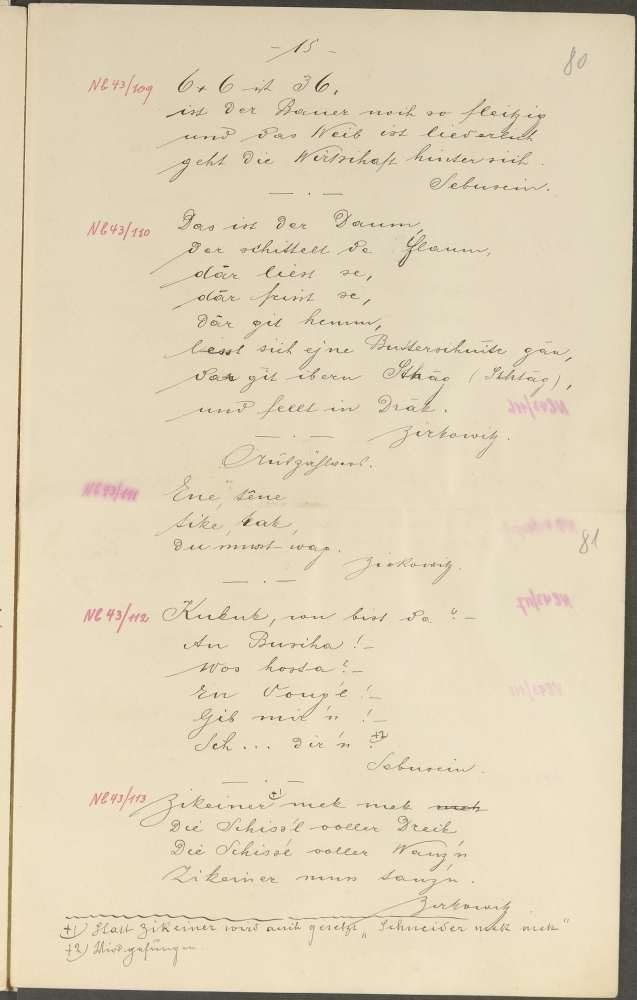 - 15 -
80
NE 43/109 6 x 6 ist 36,
ist der Bauer noch so fleißig
und das Weib ist liederlich
geht die Wirtschaft hinter sich.
Sebusein.
NE 43/110 Das ist der Daum,
der schittelt de Flaum,
där liest se,
där frist se,
där git hemm,
lesst sich ejne Butterschnite gän,
dar git ibern Stäg (Schtäg),
und fellt in Dräk.
Zirkowitz.
NE 43/111 Ene, tene
tike, tak,
du musst wag.
Zirkowitz.
81
NE 43/112 Kukuk, wu bist da? -
An Buscha! -
Wos hosta? -
En Voug'l! -
Gib mir'n! -
Sch... dir'n +2)
Sebusein.
NE 43/113 Zikeiner +1) mek mek
Die Schiss'l voller Dreck
Die Schiss'l voller Wanz'n
Zikeiner muss tanz'n.
Zirkowitz
+1) Statt Zikeiner wird auch gesetzt "Schneider mek mek"
+2) Wird gesungen.